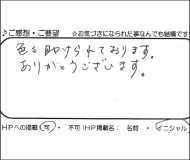 ♪ご感想・ご要望 ☆お気付きになられた事なんでも結構です
色々助けられております。
ありがとうございます。
HPへの掲載 可・不可 (HP掲載名: 名前・イニシャル